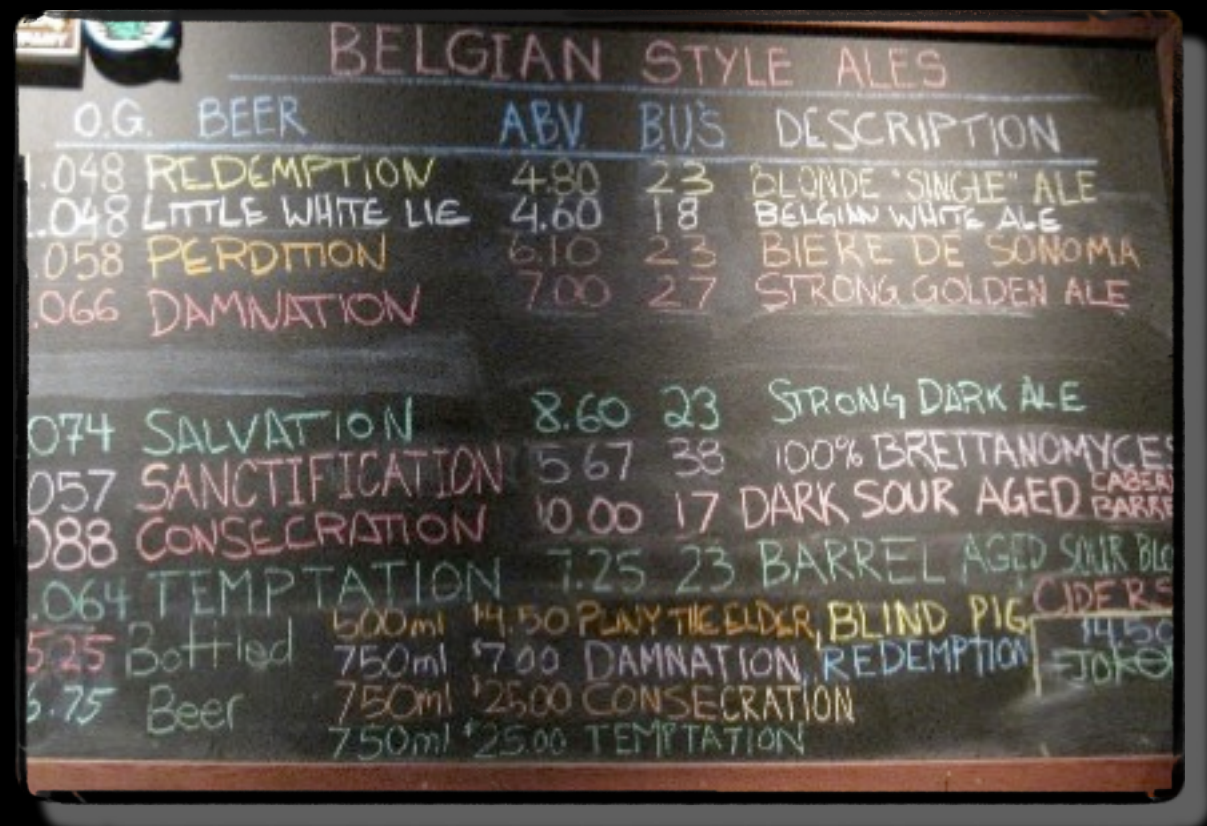 PANY
BELGIAN STYLE ALES
O.G. BEER A.B.V. B.U.'S DESCRIPTION
1.048 REDEMPTION 4.80 23 BLONDE "SINGLE" ALE
1.048 LITTLE WHITE LIE 4.60 18 BELGIAN WHITE ALE
.058 PERDITION 6.10 23 BIERE DE SONOMA
.066 DAMNATION 7.00 27 STRONG GOLDEN ALE
074 SALVATION 8.60 23 STRONG DARK ALE
057 SANCTIFICATION 5.67 38 100% BRETTANOMYCES
088 CONSECRATION 10.00 17 DARK SOUR AGED CABER
BARRE
.064 TEMPTATION 7.25 23 BARREL AGED SOUR BLO
500ml $4.50 PLINY THE ELDER, BLIND PIG CIDERS
5.25 Bottled 750ml $7.00 DAMNATION, REDEMPTION $4.50
JOKE
6.75 Beer 750ml $25.00 CONSECRATION
750ml $25.00 TEMPTATION